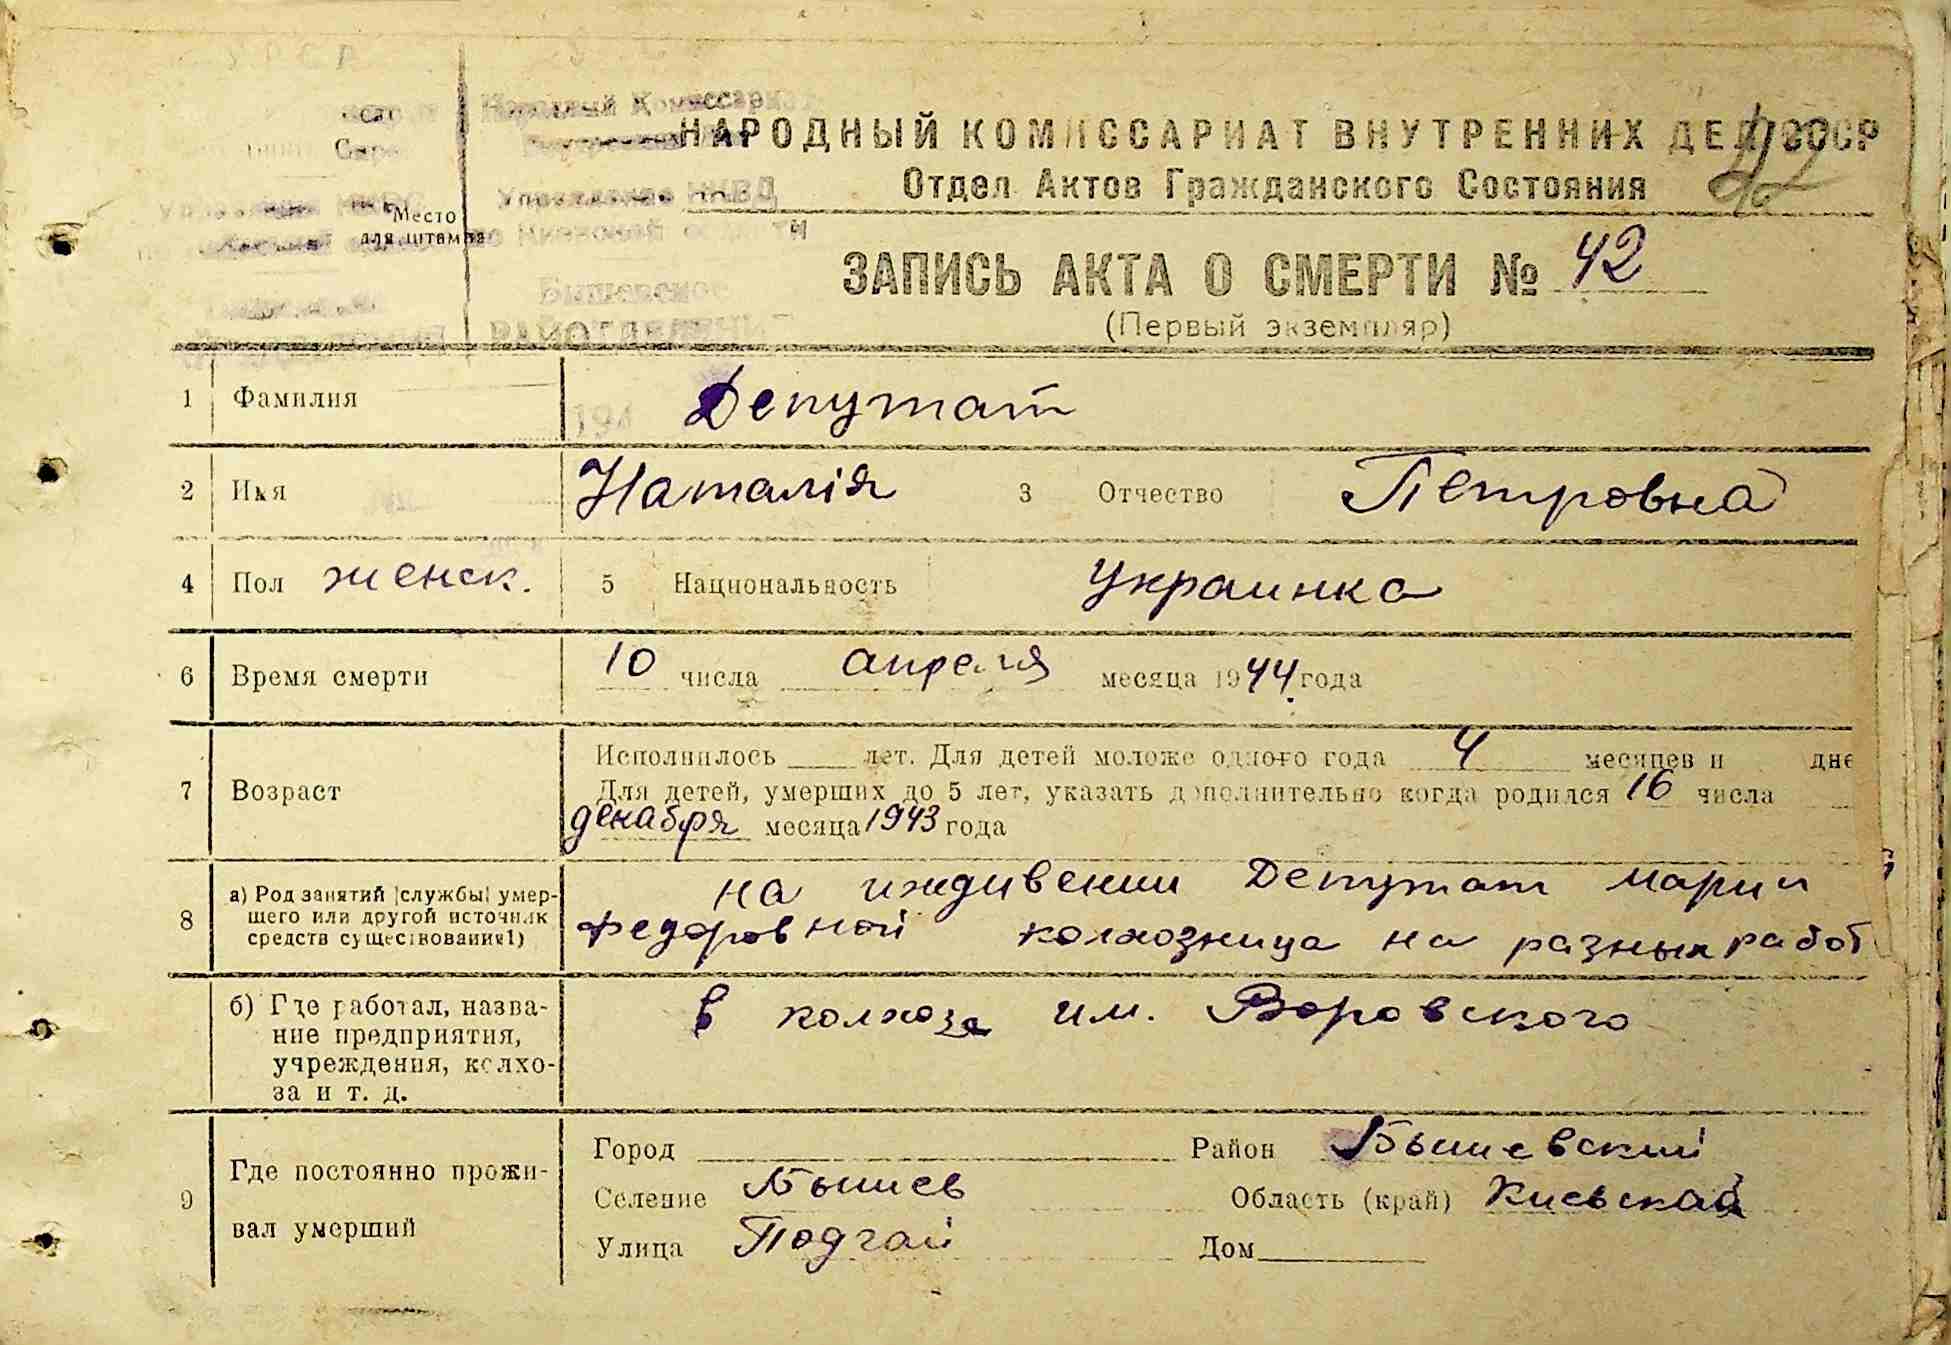 Народный Комиссариат
НАРОДНЫЙ КОМИССАРИАТ ВНУТРЕННИХ ДЕЛ СССР
Отдел Актов Гражданского Состояния
42
Управление НКВД
Место
для штампа
по Киевской области
ЗАПИСЬ АКТА О СМЕРТИ № 42
Бышевское
РАЙОТДЕЛЕНИЕ
(Первый экземпляр)
1 Фамилия 194 Депутат
2 Имя Наталія 3 Отчество Петровна
4 Пол женск. 5 Национальность Украинка
6 Время смерти 10 числа апреля месяца 1944 года
7 Возраст
Исполнилось лет. Для детей моложе одного года 4 месяцев и дне
Для детей, умерших до 5 лет, указать дополнительно когда родился 16 числа
декабря месяца 1943 года
8 а) Род занятий (службы) умер-
шего или другой источник
средств существования1)
на иждивении Депутат Марии
Федоровной колхозница на разных работ
б) Где работал, назва-
ние предприятия,
учреждения, колхо-
за и т. д.
в колхозе им. Воровского
9 Где постоянно прожи-
вал умерший
Город Район Бышевский
Селение Бышев Область (край) Киевская
Улица Подгай Дом